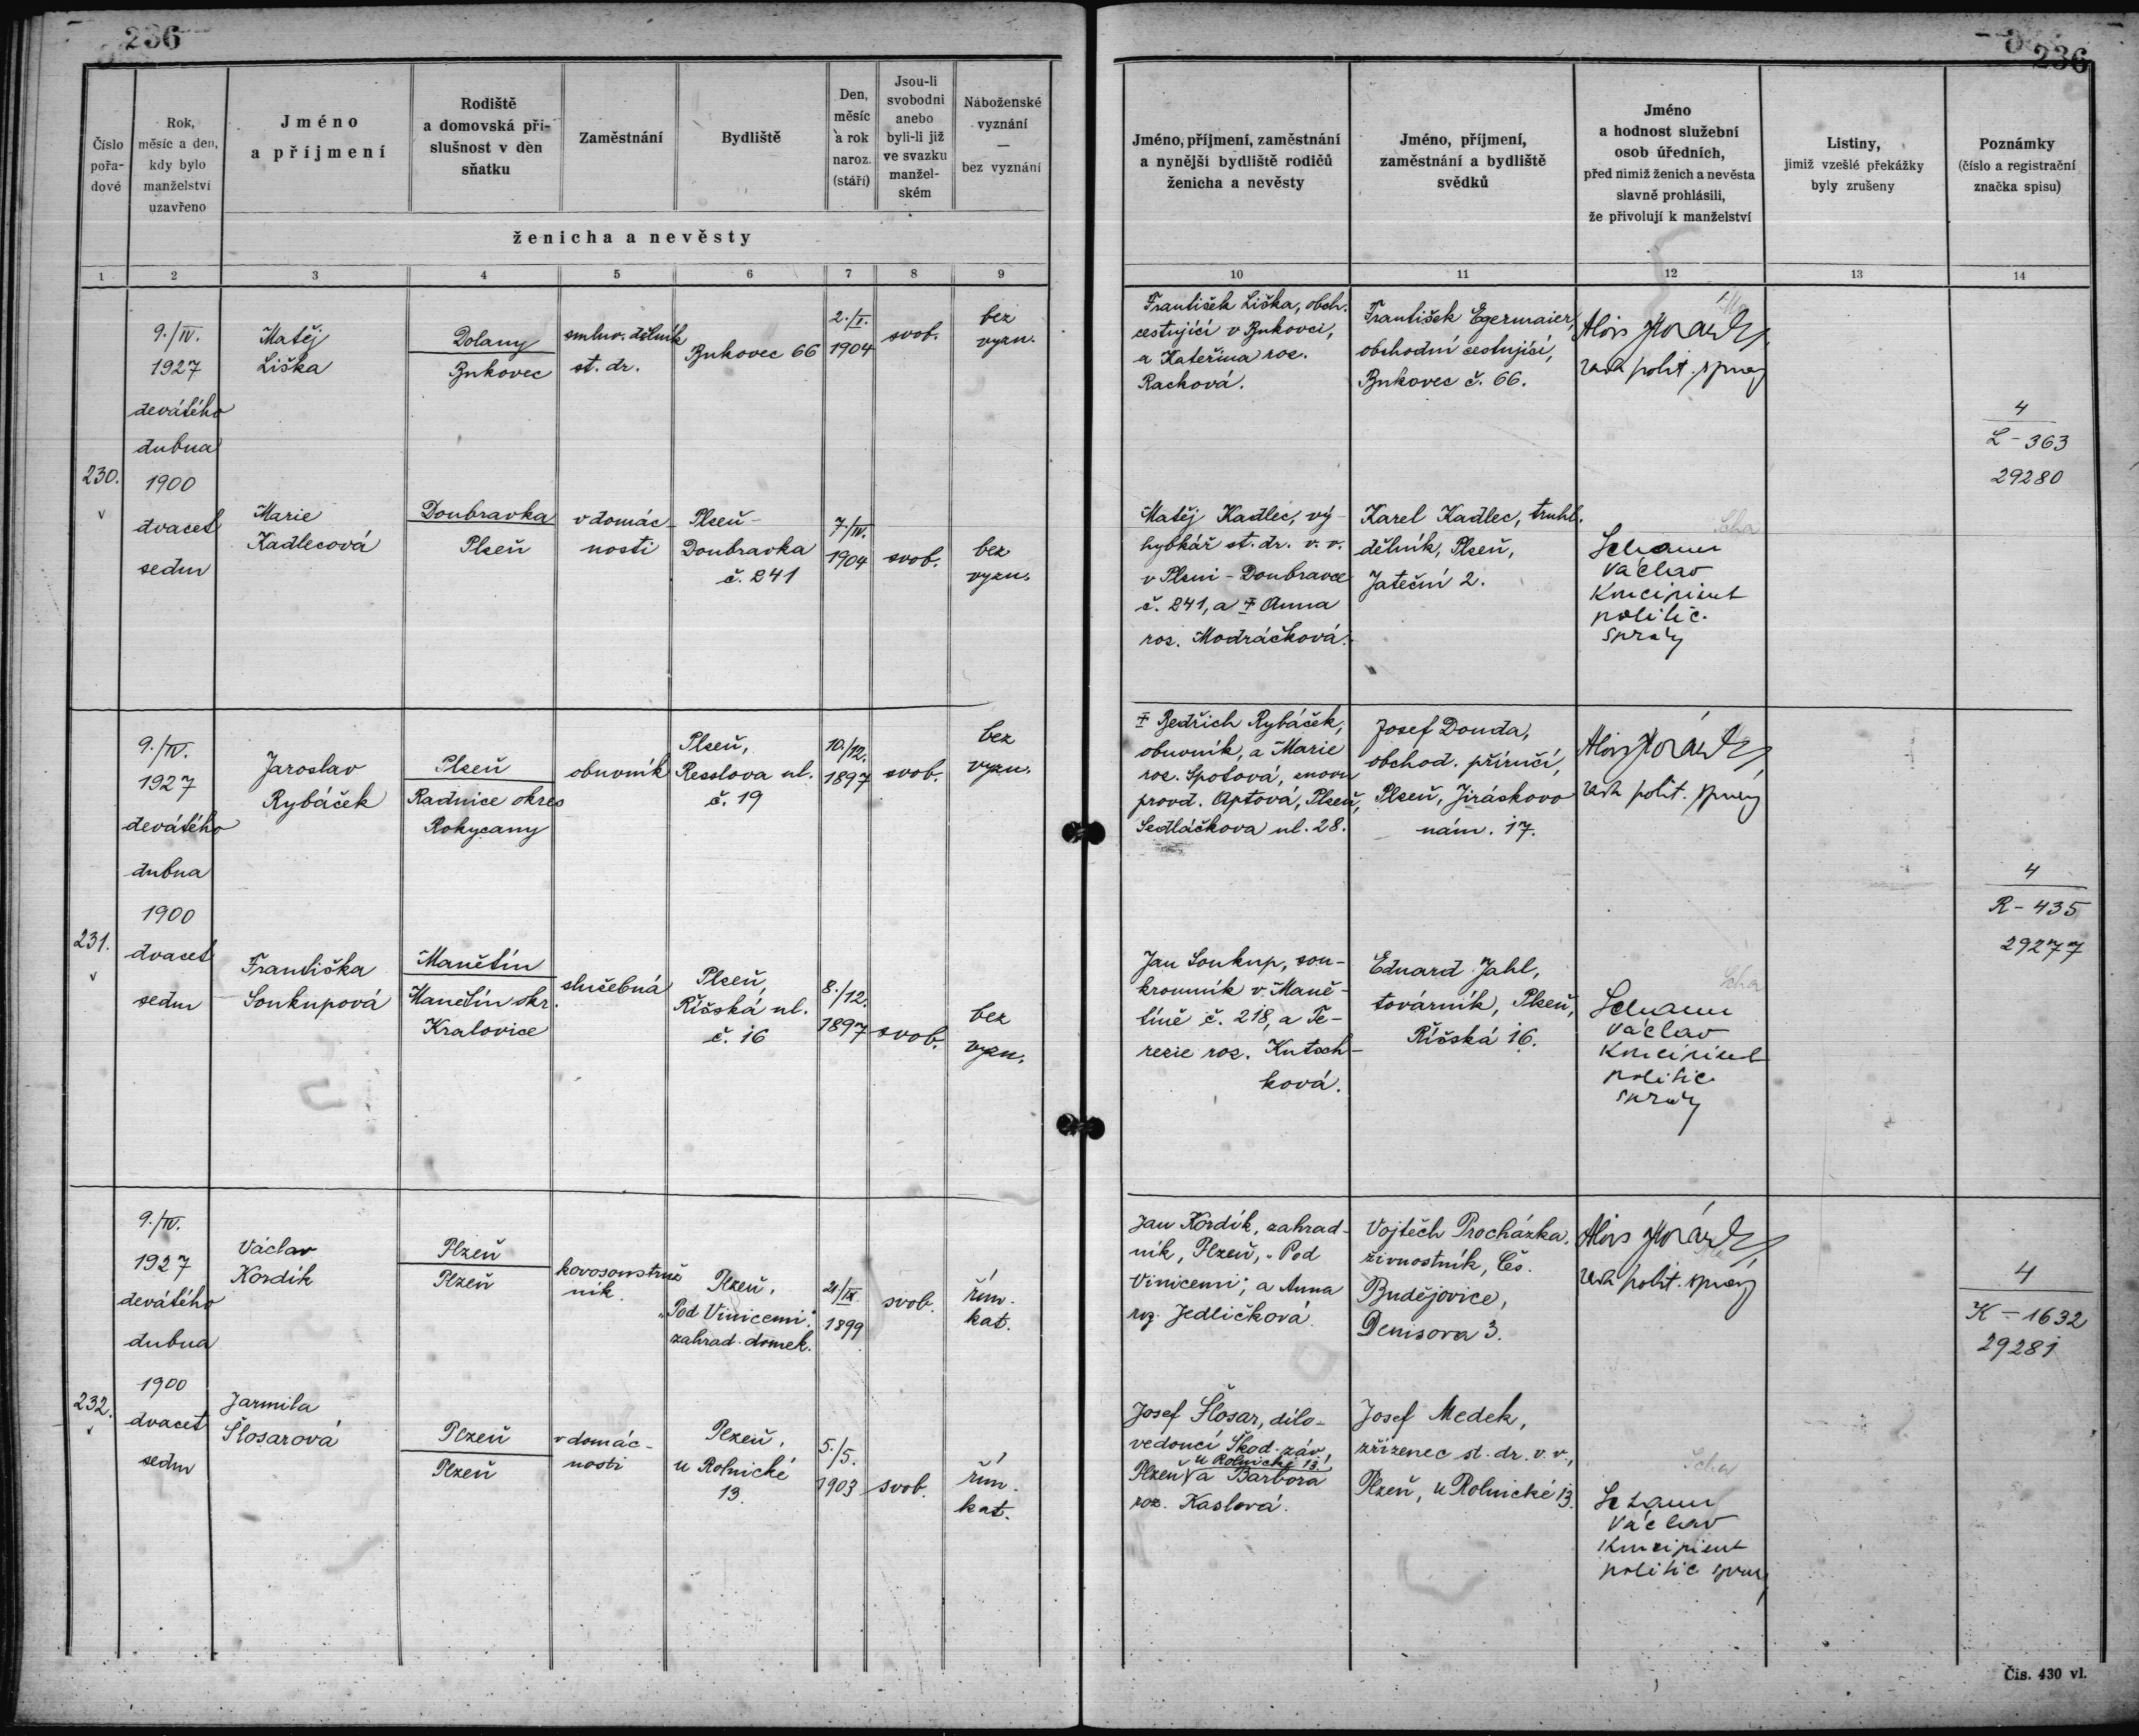 236
236
Číslo pořa- dové
Rok, měsíc a den, kdy bylo manželství uzavřeno
Jméno a příjmení
Rodiště a domovská pří- slušnost v den sňatku
Zaměstnání
Bydliště
Den, měsíc a rok naroz. (stáří)
Jsou-li svobodni anebo byli-li již ve svazku manžel- ském
Náboženské vyznání — bez vyznání
ženicha a nevěsty
Jméno, příjmení, zaměstnání a nynější bydliště rodičů ženicha a nevěsty
Jméno, příjmení, zaměstnání a bydliště svědků
Jméno a hodnost služební osob úředních, před nimiž ženich a nevěsta slavně prohlásili, že přivolují k manželství
Listiny, jimiž vzešlé překážky byly zrušeny
Poznámky (číslo a registrační značka spisu)
1 2 3 4 5 6 7 8 9 10 11 12 13 14
230.
9./IV.
1927
devátého
dubna
1900
dvacet
sedm
Matěj
Liška
Dolany
Bukovec
smluv. dělník
st. dr.
Bukovec 66
2./I.
1904
svob.
bez
vyzn.
František Liška, obch.
cestující v Bukovci,
a Kateřina roz.
Rachová.
František Egermaier,
obchodní cestující,
Bukovec č. 66.
Alois
rada polit. správy
4
L - 363
29280
Marie
Kadlecová
Doubravka
Plzeň
v domác-
nosti
Plzeň -
Doubravka
č. 241
7./IV.
1904
svob.
bez
vyzn.
Matěj Kadlec, vý-
hybkář st. dr. v. v.
v Plzni - Doubravce
č. 241, a † Anna
roz. Modráčková.
Karel Kadlec, truhl.
dělník, Plzeň,
Jateční 2.
Scha
Václav
Koncipient
politic.
správy
231.
9./IV.
1927
devátého
dubna
1900
dvacet
sedm
Jaroslav
Rybáček
Plzeň
Radnice okres
Rokycany
obuvník
Plzeň,
Resslova ul.
č. 19
10./12.
1897
svob.
bez
vyzn.
† Bedřich Rybáček,
obuvník, a Marie
roz. Spotová, znovu
provd. Aptová, Plzeň,
Sedláčkova ul. 28.
Josef Douda,
obchod. příručí,
Plzeň, Jiráskovo
nám. 17.
Alois
rada polit. správy
4
R - 435
29277
Františka
Soukupová
Manětín
Manětín okr.
Kralovice
služebná
Plzeň,
Říšská ul.
č. 16
8./12.
1897
svob.
bez
vyzn.
Jan Soukup, sou-
kromník v Maně-
tíně č. 218, a Te-
rezie roz. Kutsch-
ková.
Eduard Jahl,
továrník, Plzeň,
Říšská 16.
Scha
Václav
Koncipient
politic
správy
232.
9./IV.
1927
devátého
dubna
1900
dvacet
sedm
Václav
Kordík
Plzeň
Plzeň
kovosoustruž
ník.
Plzeň,
"Pod Vinicemi",
zahrad. domek.
21/IX.
1899
svob.
řím.
kat.
Jan Kordík, zahrad-
ník, Plzeň, "Pod
Vinicemi", a Anna
roz. Jedličková.
Vojtěch Procházka,
živnostník, Čes.
Budějovice,
Denisova 3.
Alois
rada polit. správy
4
K - 1632
29281
Jarmila
Šlosarová
Plzeň
Plzeň
v domác-
nosti
Plzeň,
u Rolnické
13.
5./5.
1903
svob.
řím.
kat.
Josef Šlosar, dílo-
vedoucí Škod. záv.
u Rolnické 13,
Plzeň a Barbora
roz. Kaslová.
Josef Medek,
zřízenec st. dr. v. v.,
Plzeň, u Rolnické 13.
Scha
Václav
Koncipient
politic správy
Čís. 430 vl.